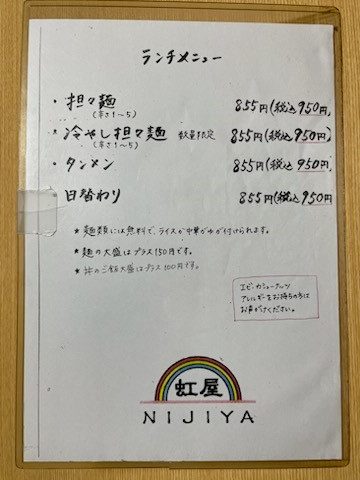 ランチメニュー
・担々麺 855円(税込950円)
(辛さ1~5)
・冷やし担々麺 数量限定 855円(税込950円)
(辛さ1~5)
・タンメン 855円(税込950円)
日替わり 855円(税込950円)
★麺類には無料で、ライスか中華がゆが付けられます。
★麺の大盛はプラス150円です。
★丼のご飯大盛はプラス100円です。
エビ・カシューナッツ
アレルギーをお持ちの方は
お声がけください。
虹屋
NIJIYA